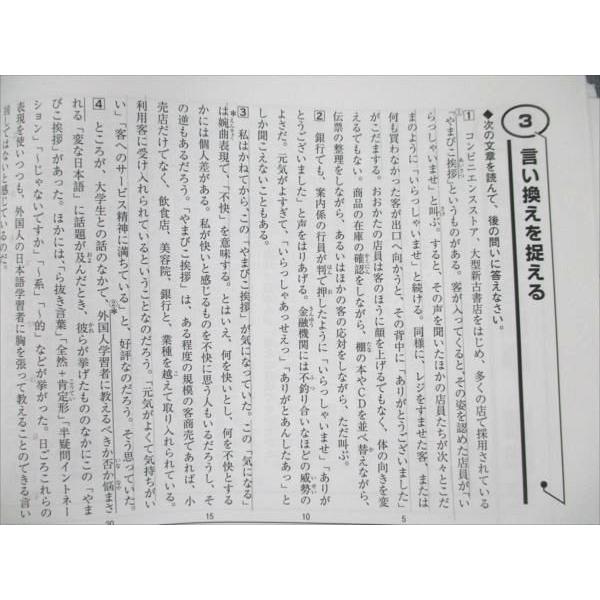 3
言い換えを捉える
◆次の文章を読んで、後の問いに答えなさい。
1 コンビニエンスストア、大型新古書店をはじめ、多くの店で採用されている
「やまびこ挨拶」というものがある。客が入ってくると、その姿を認めた店員が、「い
らっしゃいませ」と叫ぶ。すると、その声を聞いたほかの店員たちが次々とこだ
まのように「いらっしゃいませ」と続ける。同様に、レジをすませた客、または
何も買わなかった客が出口へ向かうと、その背中に「ありがとうございました」
がこだまする。おおかたの店員は客のほうに顔を上げるでもなく、体の向きを変
えるでもない。商品の在庫の確認をしながら、棚の本やCDを並べ替えながら、
伝票の整理をしながら、あるいはほかの客の応対をしながら、ただ叫ぶ。
2 銀行でも、案内係の行員が判で押したように「いらっしゃいませ」「ありが
とうございました」と声をはりあげる。金融機関には不釣り合いなほどの威勢の
よさだ。元気がよすぎて、「いらっしゃあっせえっ」「ありがとあんしたあっ」と
しか聞こえないこともある。
3 私はかねてから、この「やまびこ挨拶」が気になっていた。この「気になる」
は婉曲表現で、「不快」を意味する。とはいえ、何を快いとし、何を不快とする
かには個人差がある。私が快いと感じるものを不快に思う人もいるだろうし、そ
の逆もあるだろう。「やまびこ挨拶」は、ある程度の規模の客商売であれば、小
売店だけでなく、飲食店、美容院、銀行と、業種を越えて取り入れられている。
利用客に受け入れられているということなのだろう。「元気がよくて気持ちがい
い」「客へのサービス精神に満ちている」と、好評なのだろう。そう思っていた。
4 ところが、大学生との話のなかで、外国人学習者に教えるべきか否か悩まさ
れる「変な日本語」に話題が及んだとき、彼らが挙げたもののなかにこの「やま
びこ挨拶」があった。ほかには、「ら抜き言葉」「全然＋肯定形」「半疑問イントネー
ション」「〜じゃないですか」「〜系」「〜的」などが挙がった。日ごろこれらの
表現を使いつつも、外国人の日本語学習者に胸を張って教えることのできる言い
回しではないと感じているのだ。
5
10
15
20